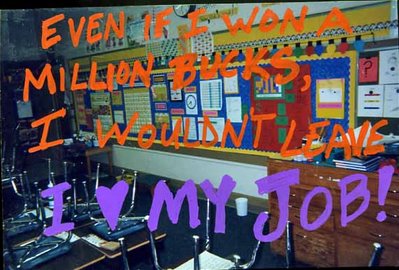 EVEN IF I WON A
MILLION BUCKS,
I WOULDN'T LEAVE
I ♥ MY JOB!